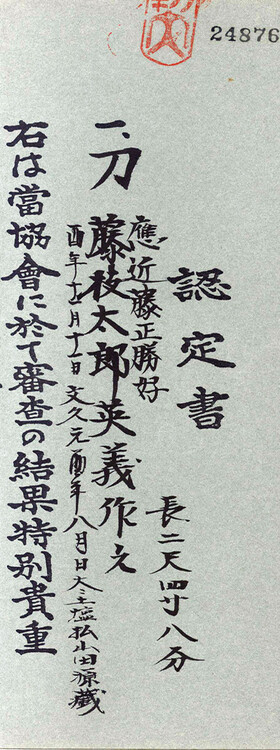 24876
認定書
長二尺四寸八分
應近藤正勝好
一、刀 藤枝太郎英義作之
酉年 文久元酉年八月日 土壇払山田源蔵
右は當協會に於て審査の結果特別貴重